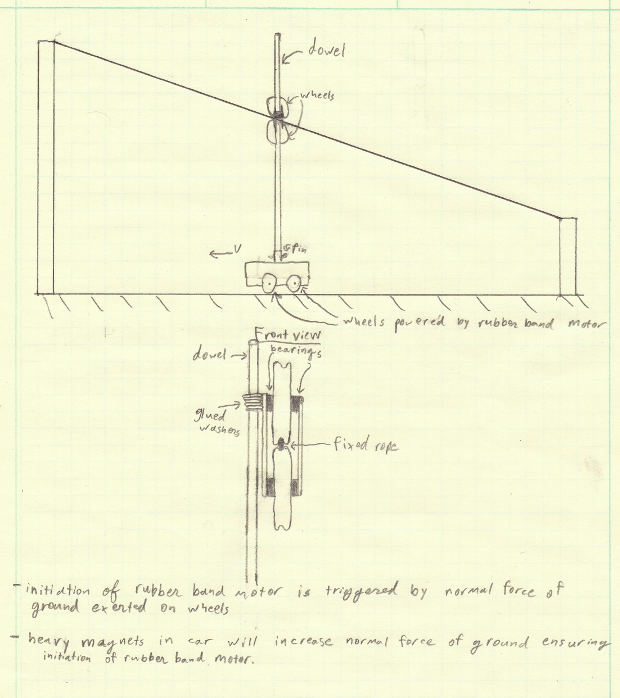 dowel
wheels
V
pin
wheels powered by rubber band motor
Front view
dowel
bearings
glued
washers
fixed rope
- initiation of rubber band motor is triggered by normal force of
ground exerted on wheels
- heavy magnets in car will increase normal force of ground ensuring
initiation of rubber band motor.